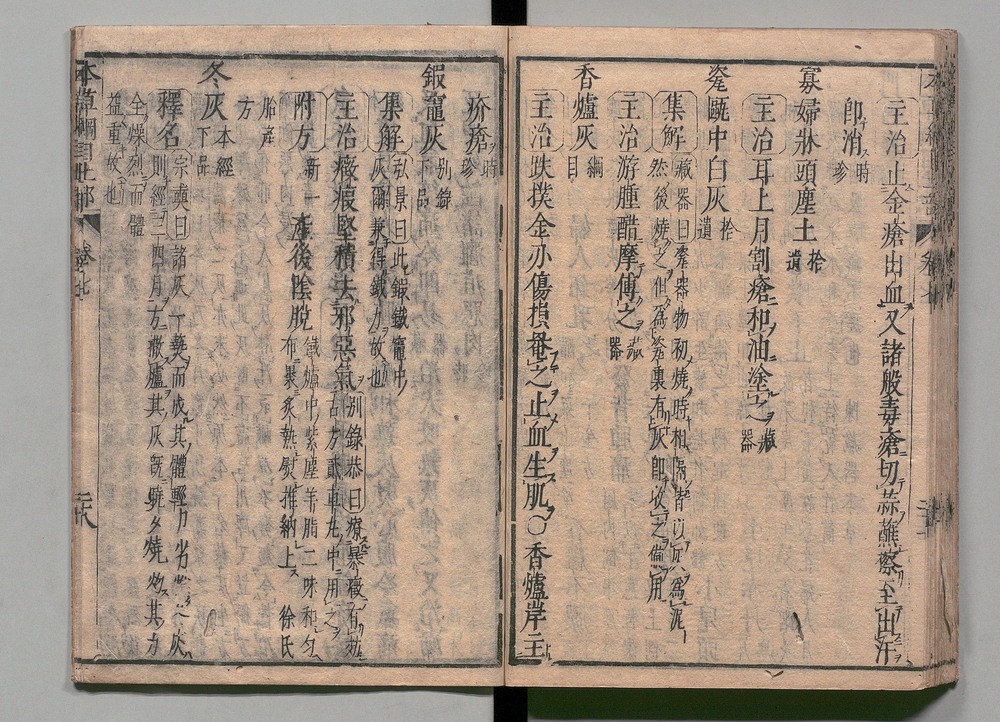 主治止金瘡出血又諸般毒瘡切蒜蘸擦至出汗
即消時珍
寡婦牀頭塵土拾遺
主治耳上月割瘡和油塗之藏器
瓷甌中白灰拾遺
集解藏器曰瓷器物初燒時相隔皆以灰為泥
然後燒之但為瓷裏有灰即收之備用
主治游腫醋摩傅之藏器
香爐灰綱目
主治跌撲金刃傷損罨之止血生肌○香爐岸主
疥瘡時珍
鍜竈灰別錄下品
集解弘景曰此鍜鐵竈中
灰爾兼得鐵力故也
主治癥瘕堅積去邪惡氣別錄恭曰療暴癥有效
古方貳車丸中用之
附方新一產後陰脫鐵爐中紫塵羊脂二味和勻
布裹炙熱熨推納上徐氏
胎產
方
冬灰本經下品
釋名宗奭曰諸灰一爇而成其體輕力劣惟冬灰
則經三四月方撤爐其灰既曉夕燒灼其力
全燥烈而體
益重故也
本草綱目土部
卷七
二十八